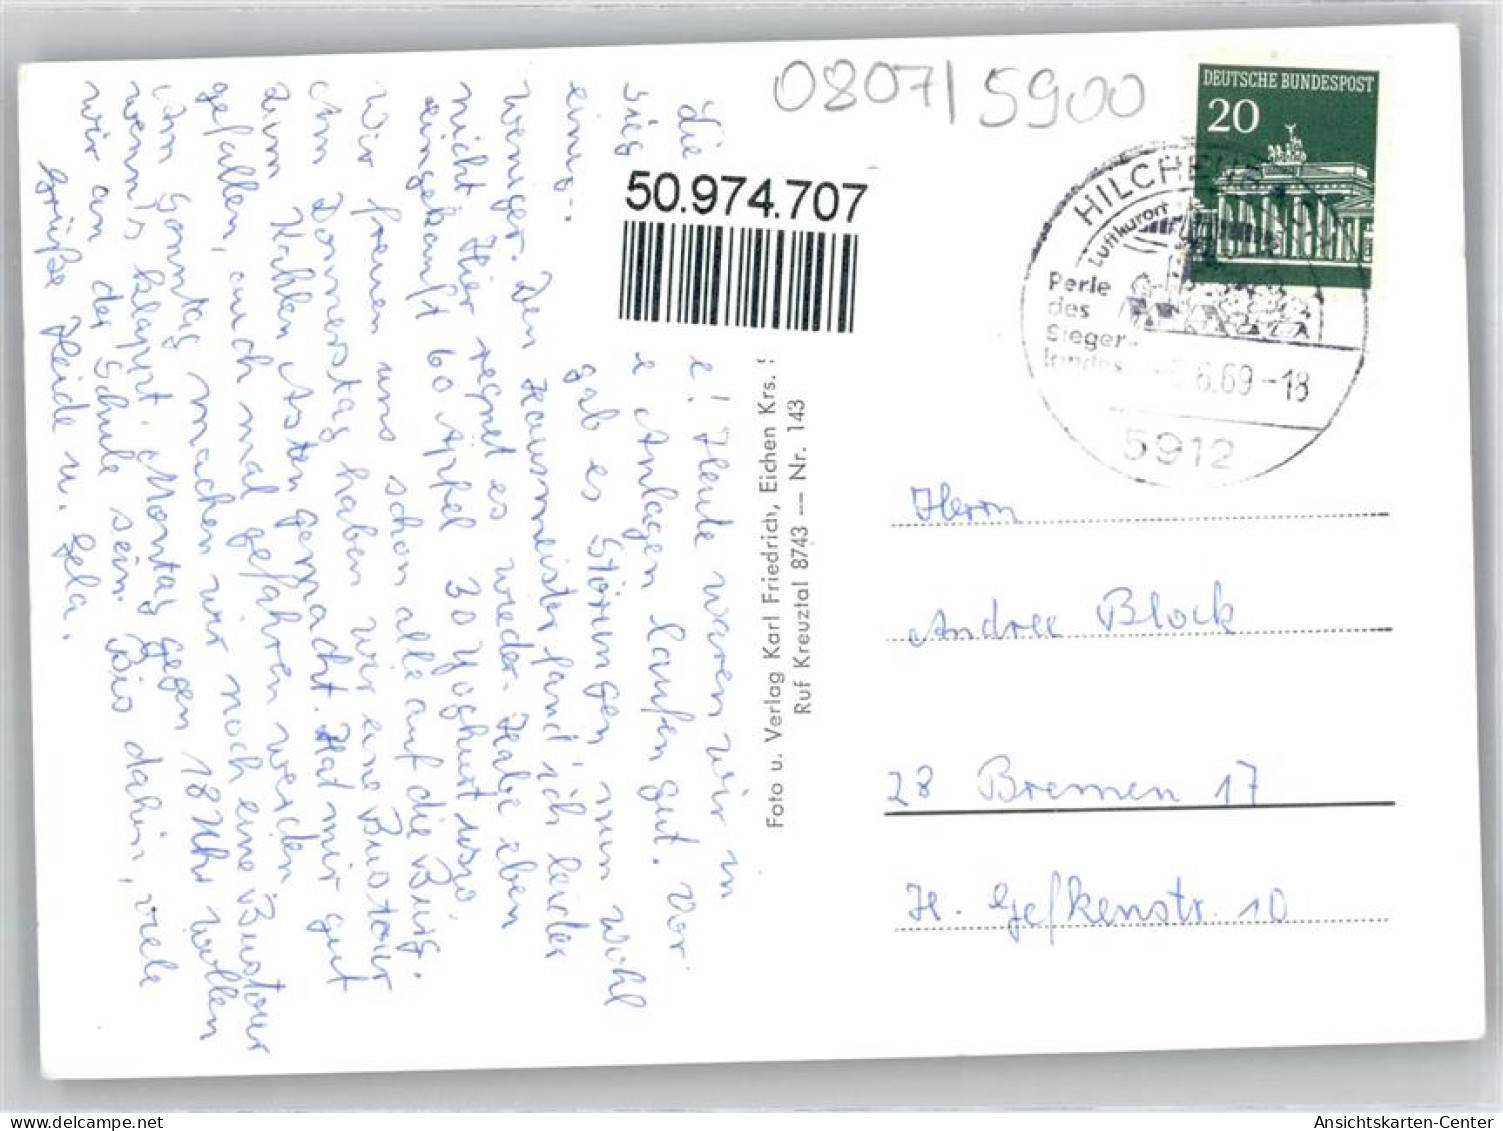 0807/5900
50.974.707
DEUTSCHE BUNDESPOST
20
HILCHENB
Luftkurort
Perle
des
Sieger-
landes
.6.69-18
5912
Herrn
Andree Block
28 Bremen 17
H. Gefkenstr. 10
Foto u. Verlag Karl Friedrich, Eichen Krs.
Ruf Kreuztal 8743 — Nr. 143
Die e! Heute waren wir in
Sieg e Anlagen laufen gut. Vor
einig. gab es Störungen nun wohl
weniger. Den Hausmeister fand ich leider
nicht. Hier regnet es wieder. Habe eben
eingekauft 60 Äpfel 30 Yoghurt usw.
Wir freuen uns schon alle auf die Burg.
Am Donnerstag haben wir eine Bustour
zum Kahlen Asten gemacht. Hat mir gut
gefallen, auch mal gefahren werden.
Am Sonntag machen wir noch eine Bustour
wenn's klappt. Montag gegen 18 Uhr wollen
wir an der Schule sein. Bis dahin, viele
Grüße Heide u. Gela.
Ansichtskarten-Center